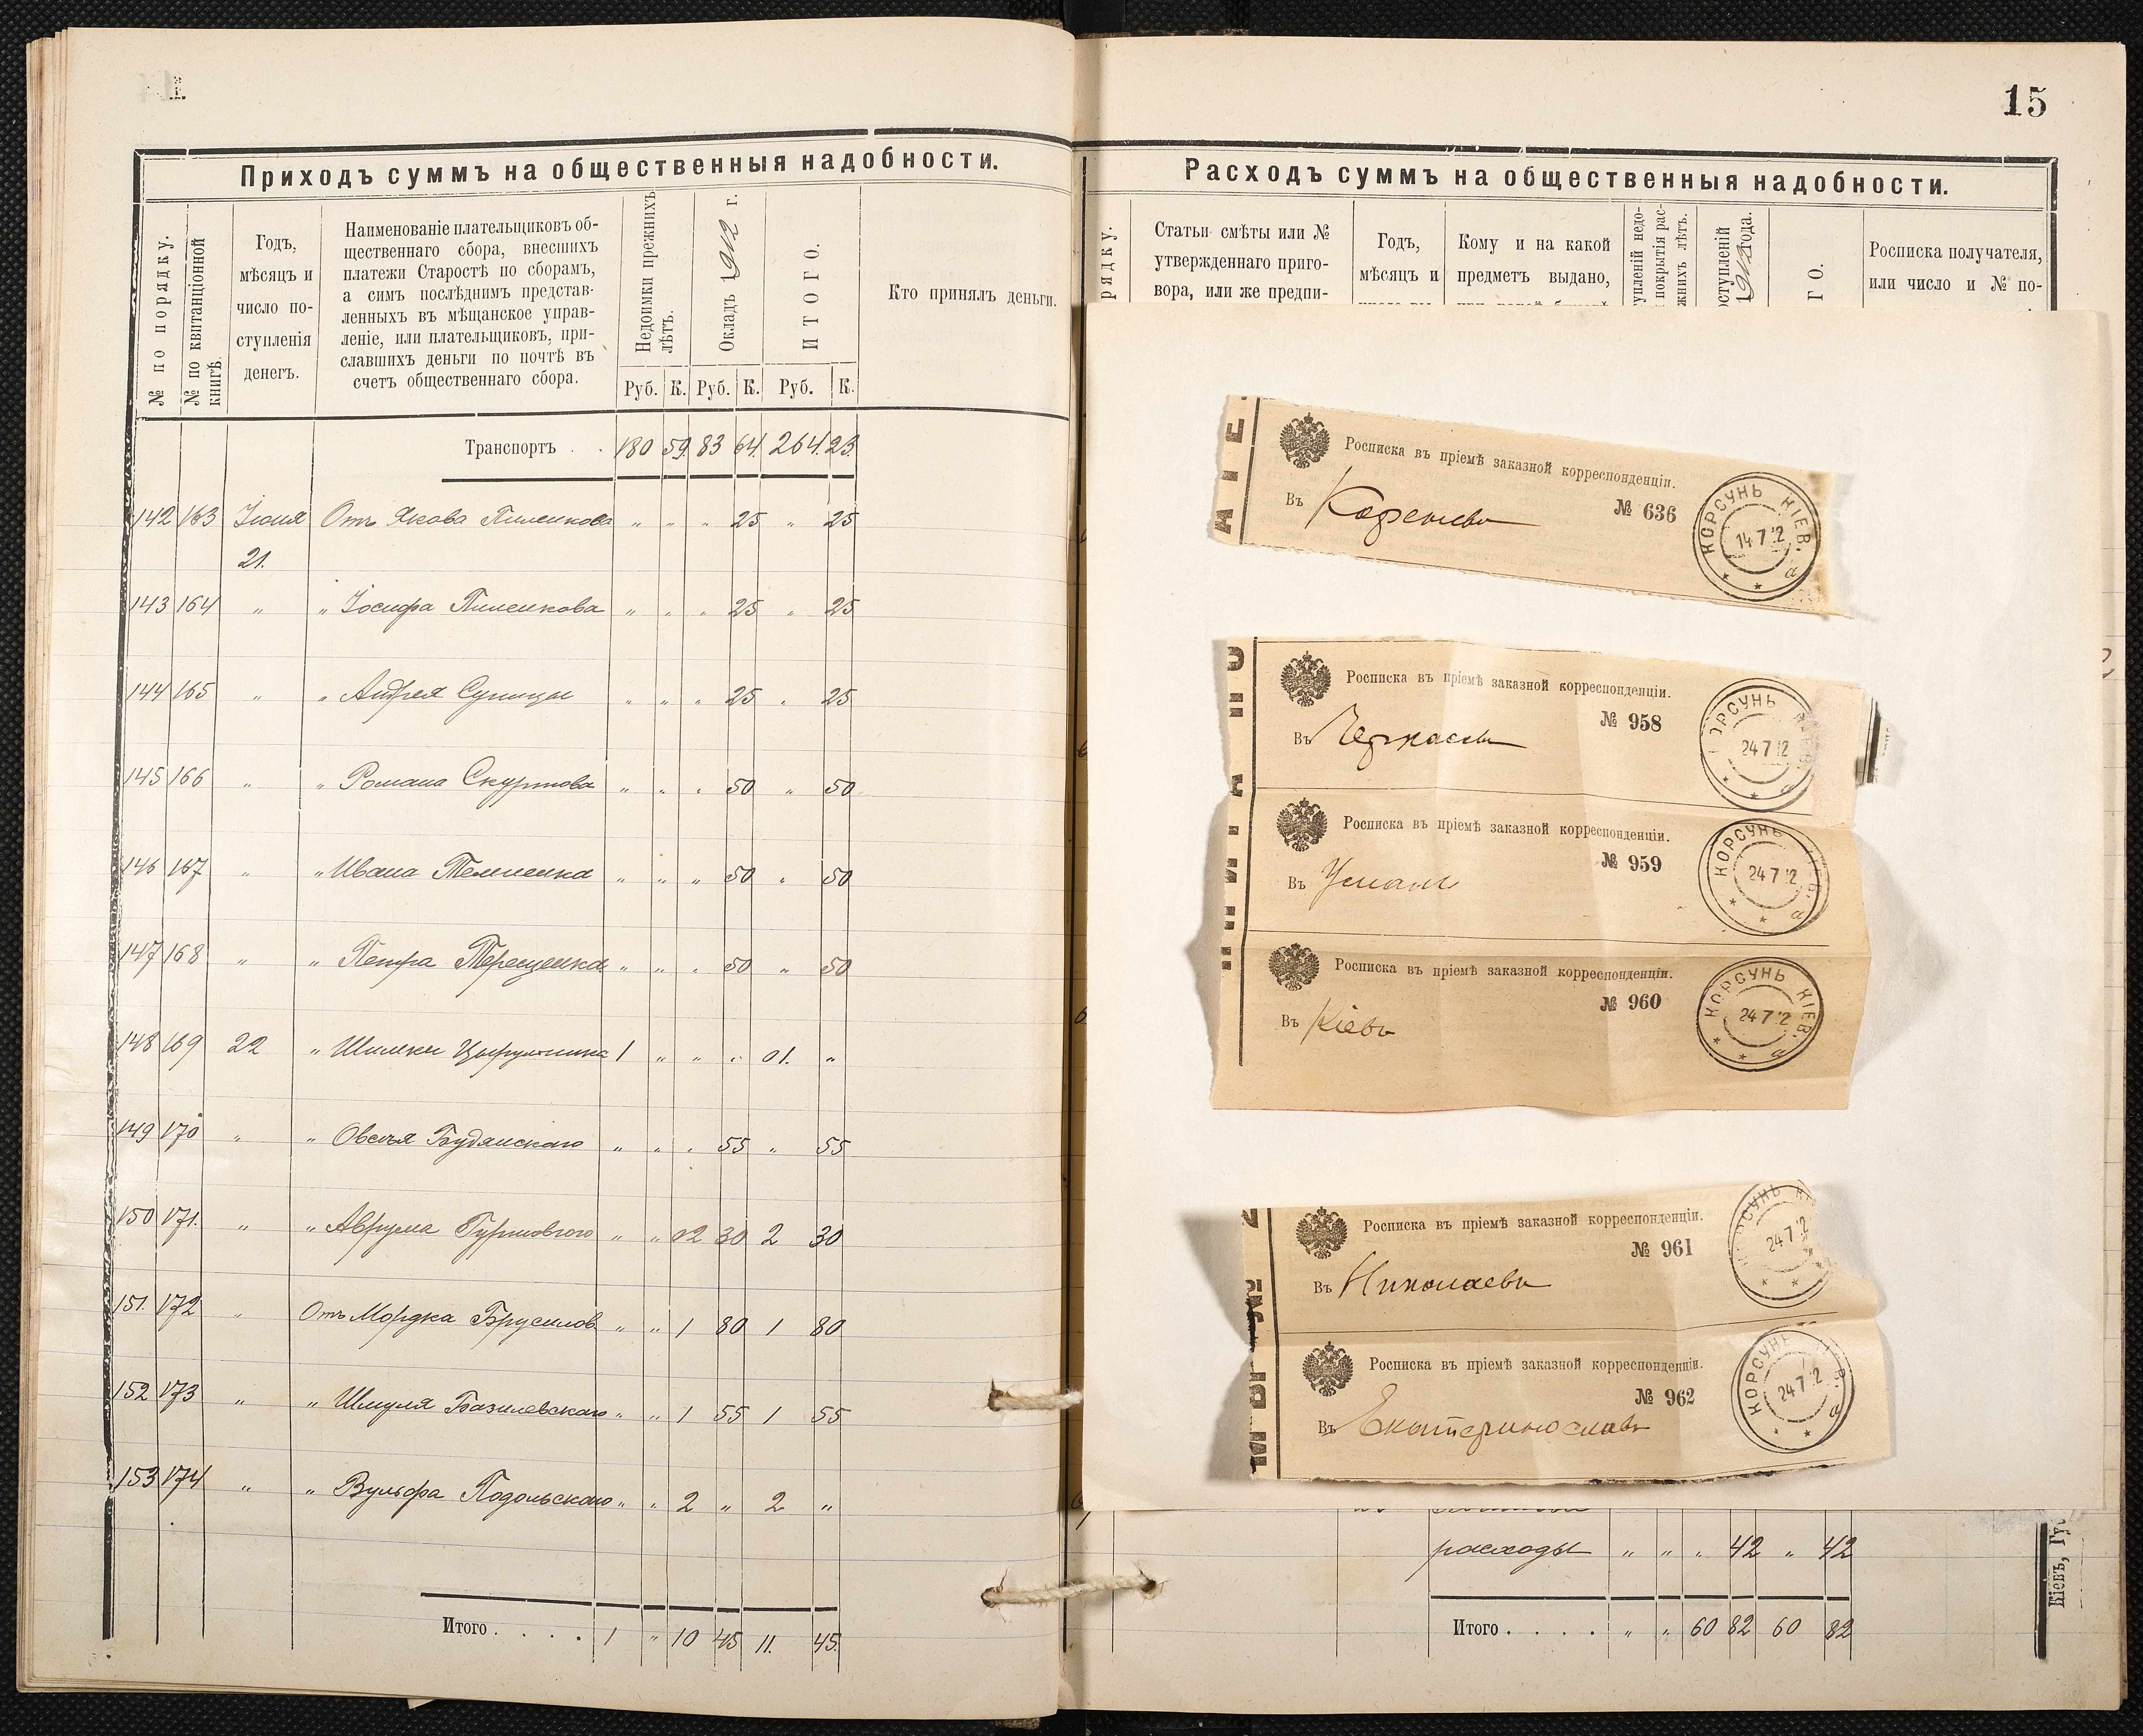 15
Приходъ суммъ на общественныя надобности.
№ по порядку.
№ по квитанціонной книгѣ.
Годъ,
мѣсяцъ и
число по-
ступленія
денегъ.
Наименованіе плательщиковъ об-
щественнаго сбора, внесшихъ
платежи Старостѣ по сборамъ,
а симъ послѣднимъ представ-
ленныхъ въ мѣщанское управ-
леніе, или плательщиковъ, при-
славшихъ деньги по почтѣ въ
счетъ общественнаго сбора.
Недоимки прежнихъ лѣтъ.
Окладъ 1912 г.
ИТОГО.
Кто принялъ деньги.
Руб. К. Руб. К. Руб. К.
Транспортъ . . 180 59. 83 64. 264. 23.
142 163 Іюня Отъ Якова Пиленкова " " " 25 " 25
21.
143 164 " " Іосифа Пиленкова " " " 25 " 25
144 165 " " Андрея Супицы " " " 25 " 25
145 166 " " Романа Скуртова " " " 50 " 50
146 167 " " Ивана Темченка " " " 50 " 50
147 168 " " Петра Терещенка " " " 50 " 50
148 169 22 " Шилки Цырульника 1 " " " 01. "
149 170 " " Овсья Будянскаго " " " 55 " 55
150 171. " " Аврума " " 02 30 2 30
151. 172 " Отъ Мордка Брусилов " " 1 80 1 80
152 173 " " Шмуля Базилевскаго " " 1 55 1 55
153 174 " " Вульфа Подольскаго " " 2 " 2 "
Итого . . . . 1 " 10 45 11. 45.
Расходъ суммъ на общественныя надобности.
рядку.
Статьи смѣты или №
утвержденнаго приго-
вора, или же предпи-
Годъ,
мѣсяцъ и
Кому и на какой
предметъ выдано,
упленій недо-
покрытія рас-
жнихъ лѣтъ.
оступленій
1912 года.
ГО.
Росписка получателя,
или число и № по-
Росписка въ пріемѣ заказной корреспонденціи.
№ 636
Въ Каренево
КОРСУНЬ КІЕВ.
14 7 12
а
Росписка въ пріемѣ заказной корреспонденціи.
№ 958
Въ Черкассы
ОРСУНЬ
24 7 12
Росписка въ пріемѣ заказной корреспонденціи.
№ 959
Въ Умань
КОРСУНЬ
24 7 12
а
Росписка въ пріемѣ заказной корреспонденціи.
№ 960
Въ Кіевъ
КОРСУНЬ КІЕВ.
24 7 12
а
Росписка въ пріемѣ заказной корреспонденціи.
№ 961
Въ Николаевъ
24 7 12
Росписка въ пріемѣ заказной корреспонденціи.
№ 962
Въ Екатеринославъ
КОРСУНЬ
24 7 12
а
расходы " " " 42 " 42
Итого . . . . " " 60 82 60 82
Кіевъ, Гу